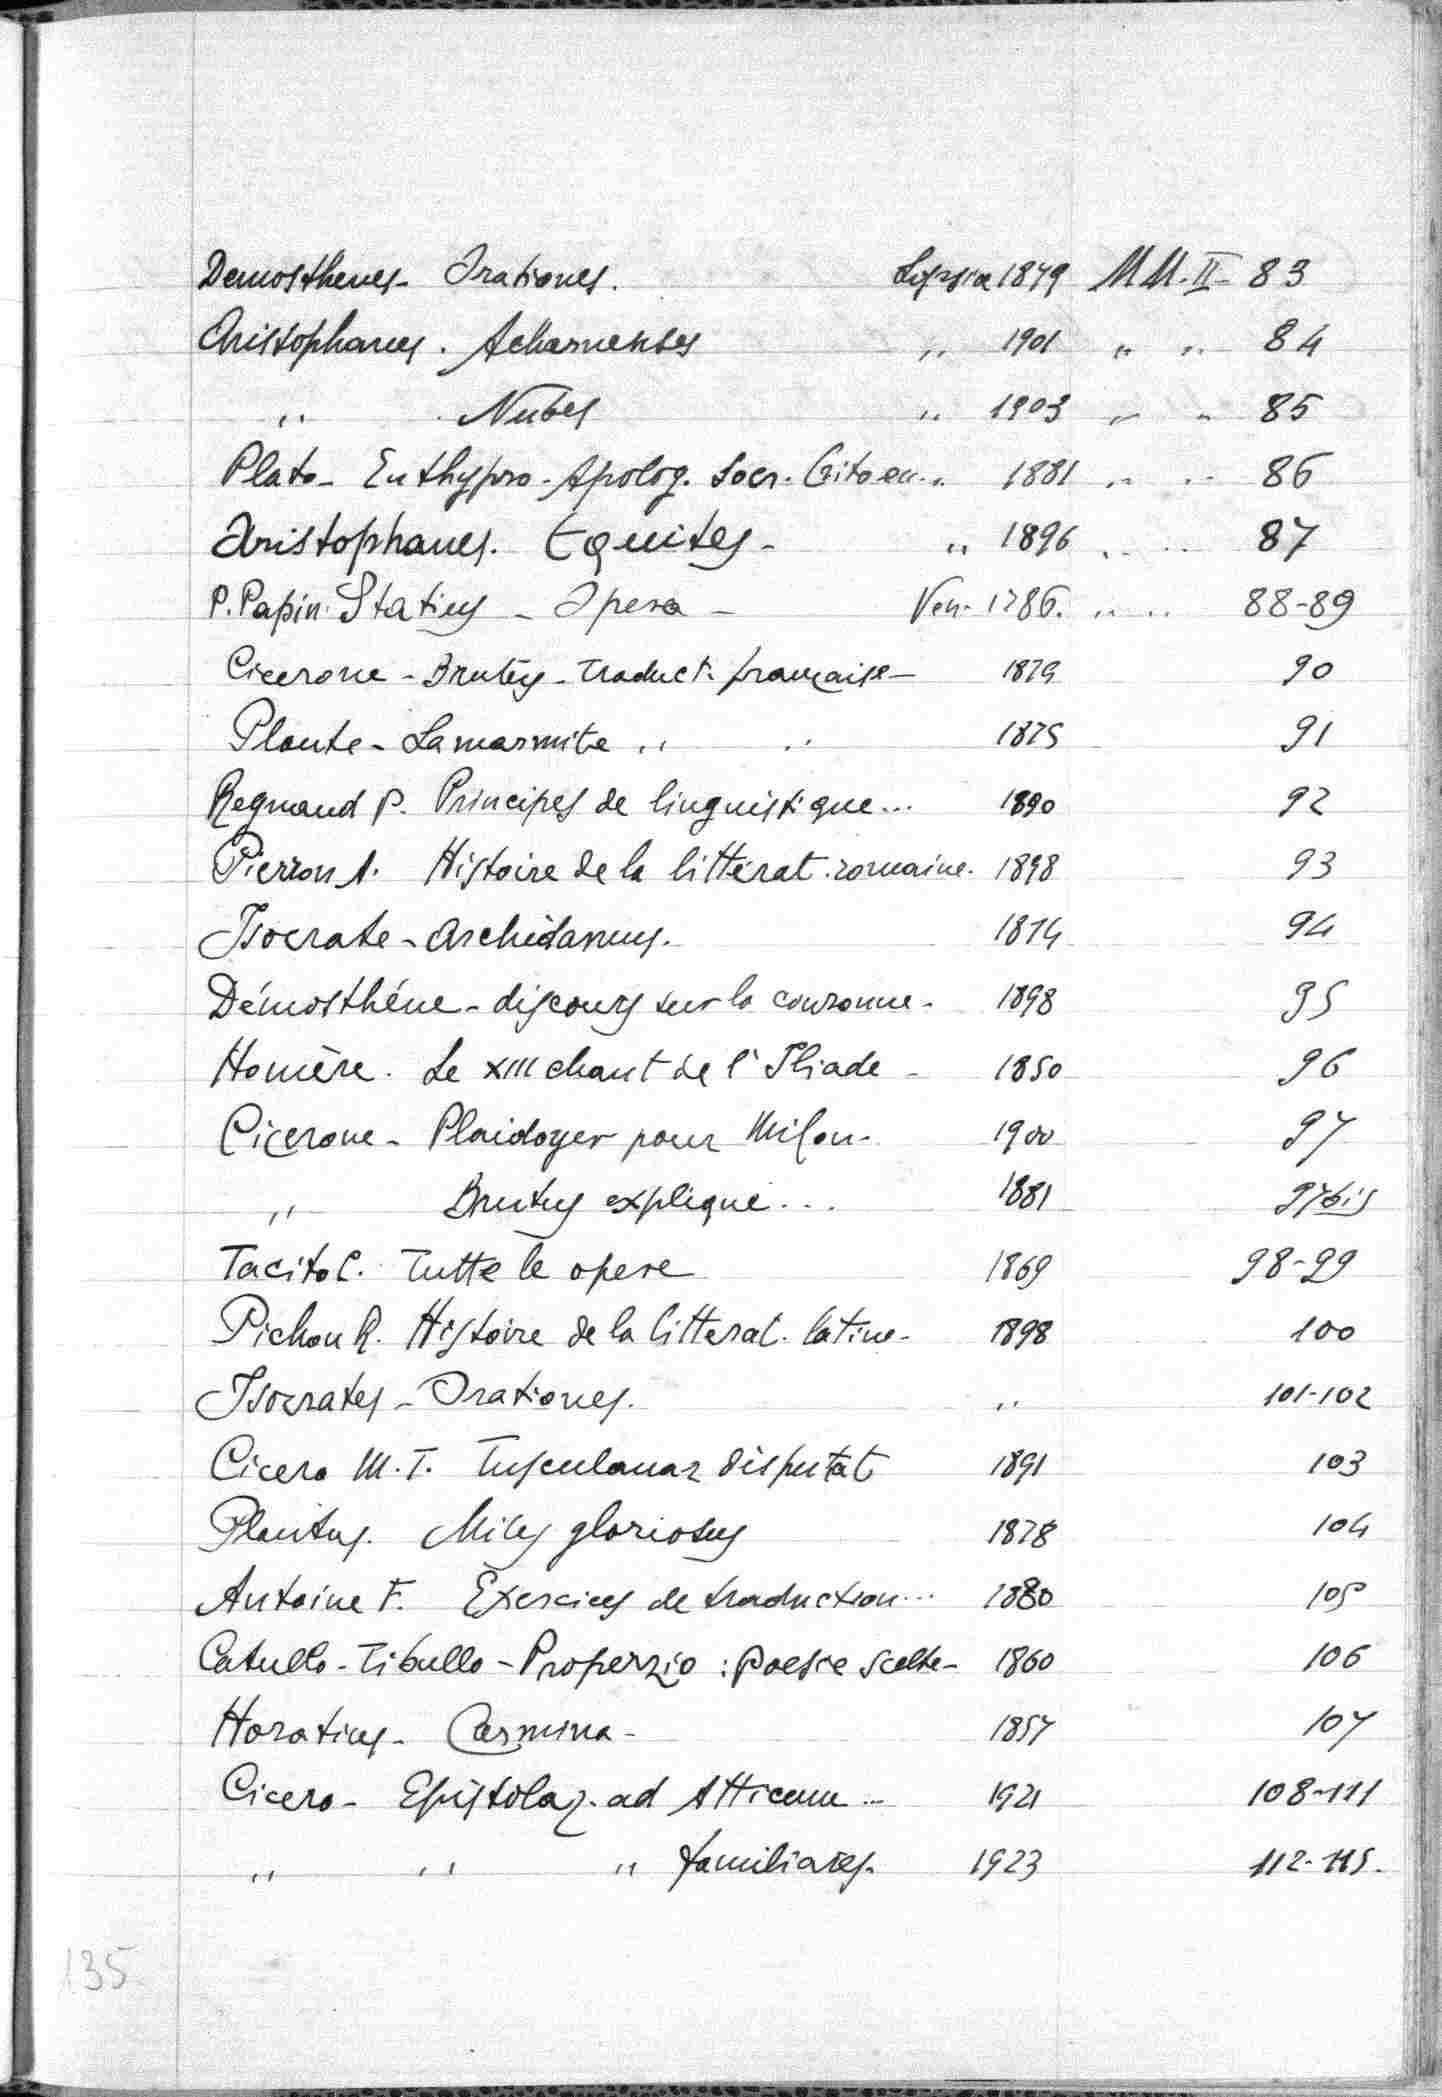 Demosthenes - Orationes. Lipsia 1879 M M. II - 83
Aristophanes. Acharnenses „ 1901 „ „ 84
„ Nubes „ 1903 „ „ 85
Plato - Euthypro - Apolog. Socr. Crito ec. „ 1881 „ „ 86
Aristophanes. Equites - „ 1896 „ „ 87
P. Papin. Statius - Opera - Ven. 1786. „ „ 88-89
Cicerone - Brutus - Traduct. française - 1879 90
Plaute - La marmite „ „ 1875 91
Regnaud P. Principes de linguistique... 1890 92
Pierron A. Histoire de la littérat. romaine. 1898 93
Isocrate - Archidamus. 1874 94
Démosthéne - discours sur la couronne - 1898 95
Homère. Le XIII chant de l'Iliade - 1850 96
Cicerone - Plaidoyer pour Milon - 1900 97
„ Brutus explique... 1881 97 bis
Tacito C. Tutte le opere 1869 98-99
Pichon R. Histoire de la litterat. latine - 1898 100
Isocrates - Orationes. „ 101-102
Cicero M. T. Tusculanar disputat 1891 103
Plautus. Miles gloriosus 1878 104
Antoine F. Exercices de traduction... 1880 105
Catullo - Tibullo - Properzio : Poesie scelte - 1860 106
Horatius - Carmina - 1857 107
Cicero - Epistolae. ad Atticum... 1921 108-111
„ „ „ familiares. 1923 112-115.
135